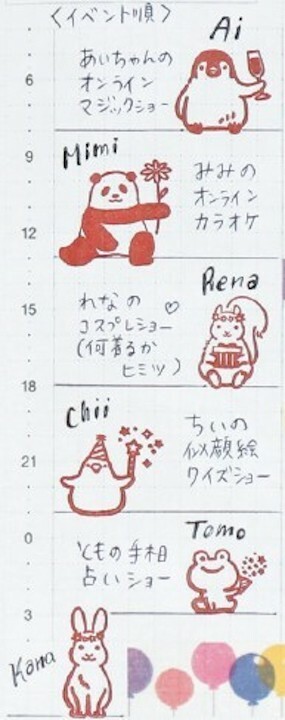 〈イベント順〉
Ai
あいちゃんの
オンライン
マジックショー
6
9
Mimi
みみの
オンライン
カラオケ
12
Rena
れなの♡
コスプレショー
(何着るか
ヒミツ)
15
18
Chii
ちいの
似顔絵
クイズショー
21
0
Tomo
ともの手相
占いショー
3
Kana